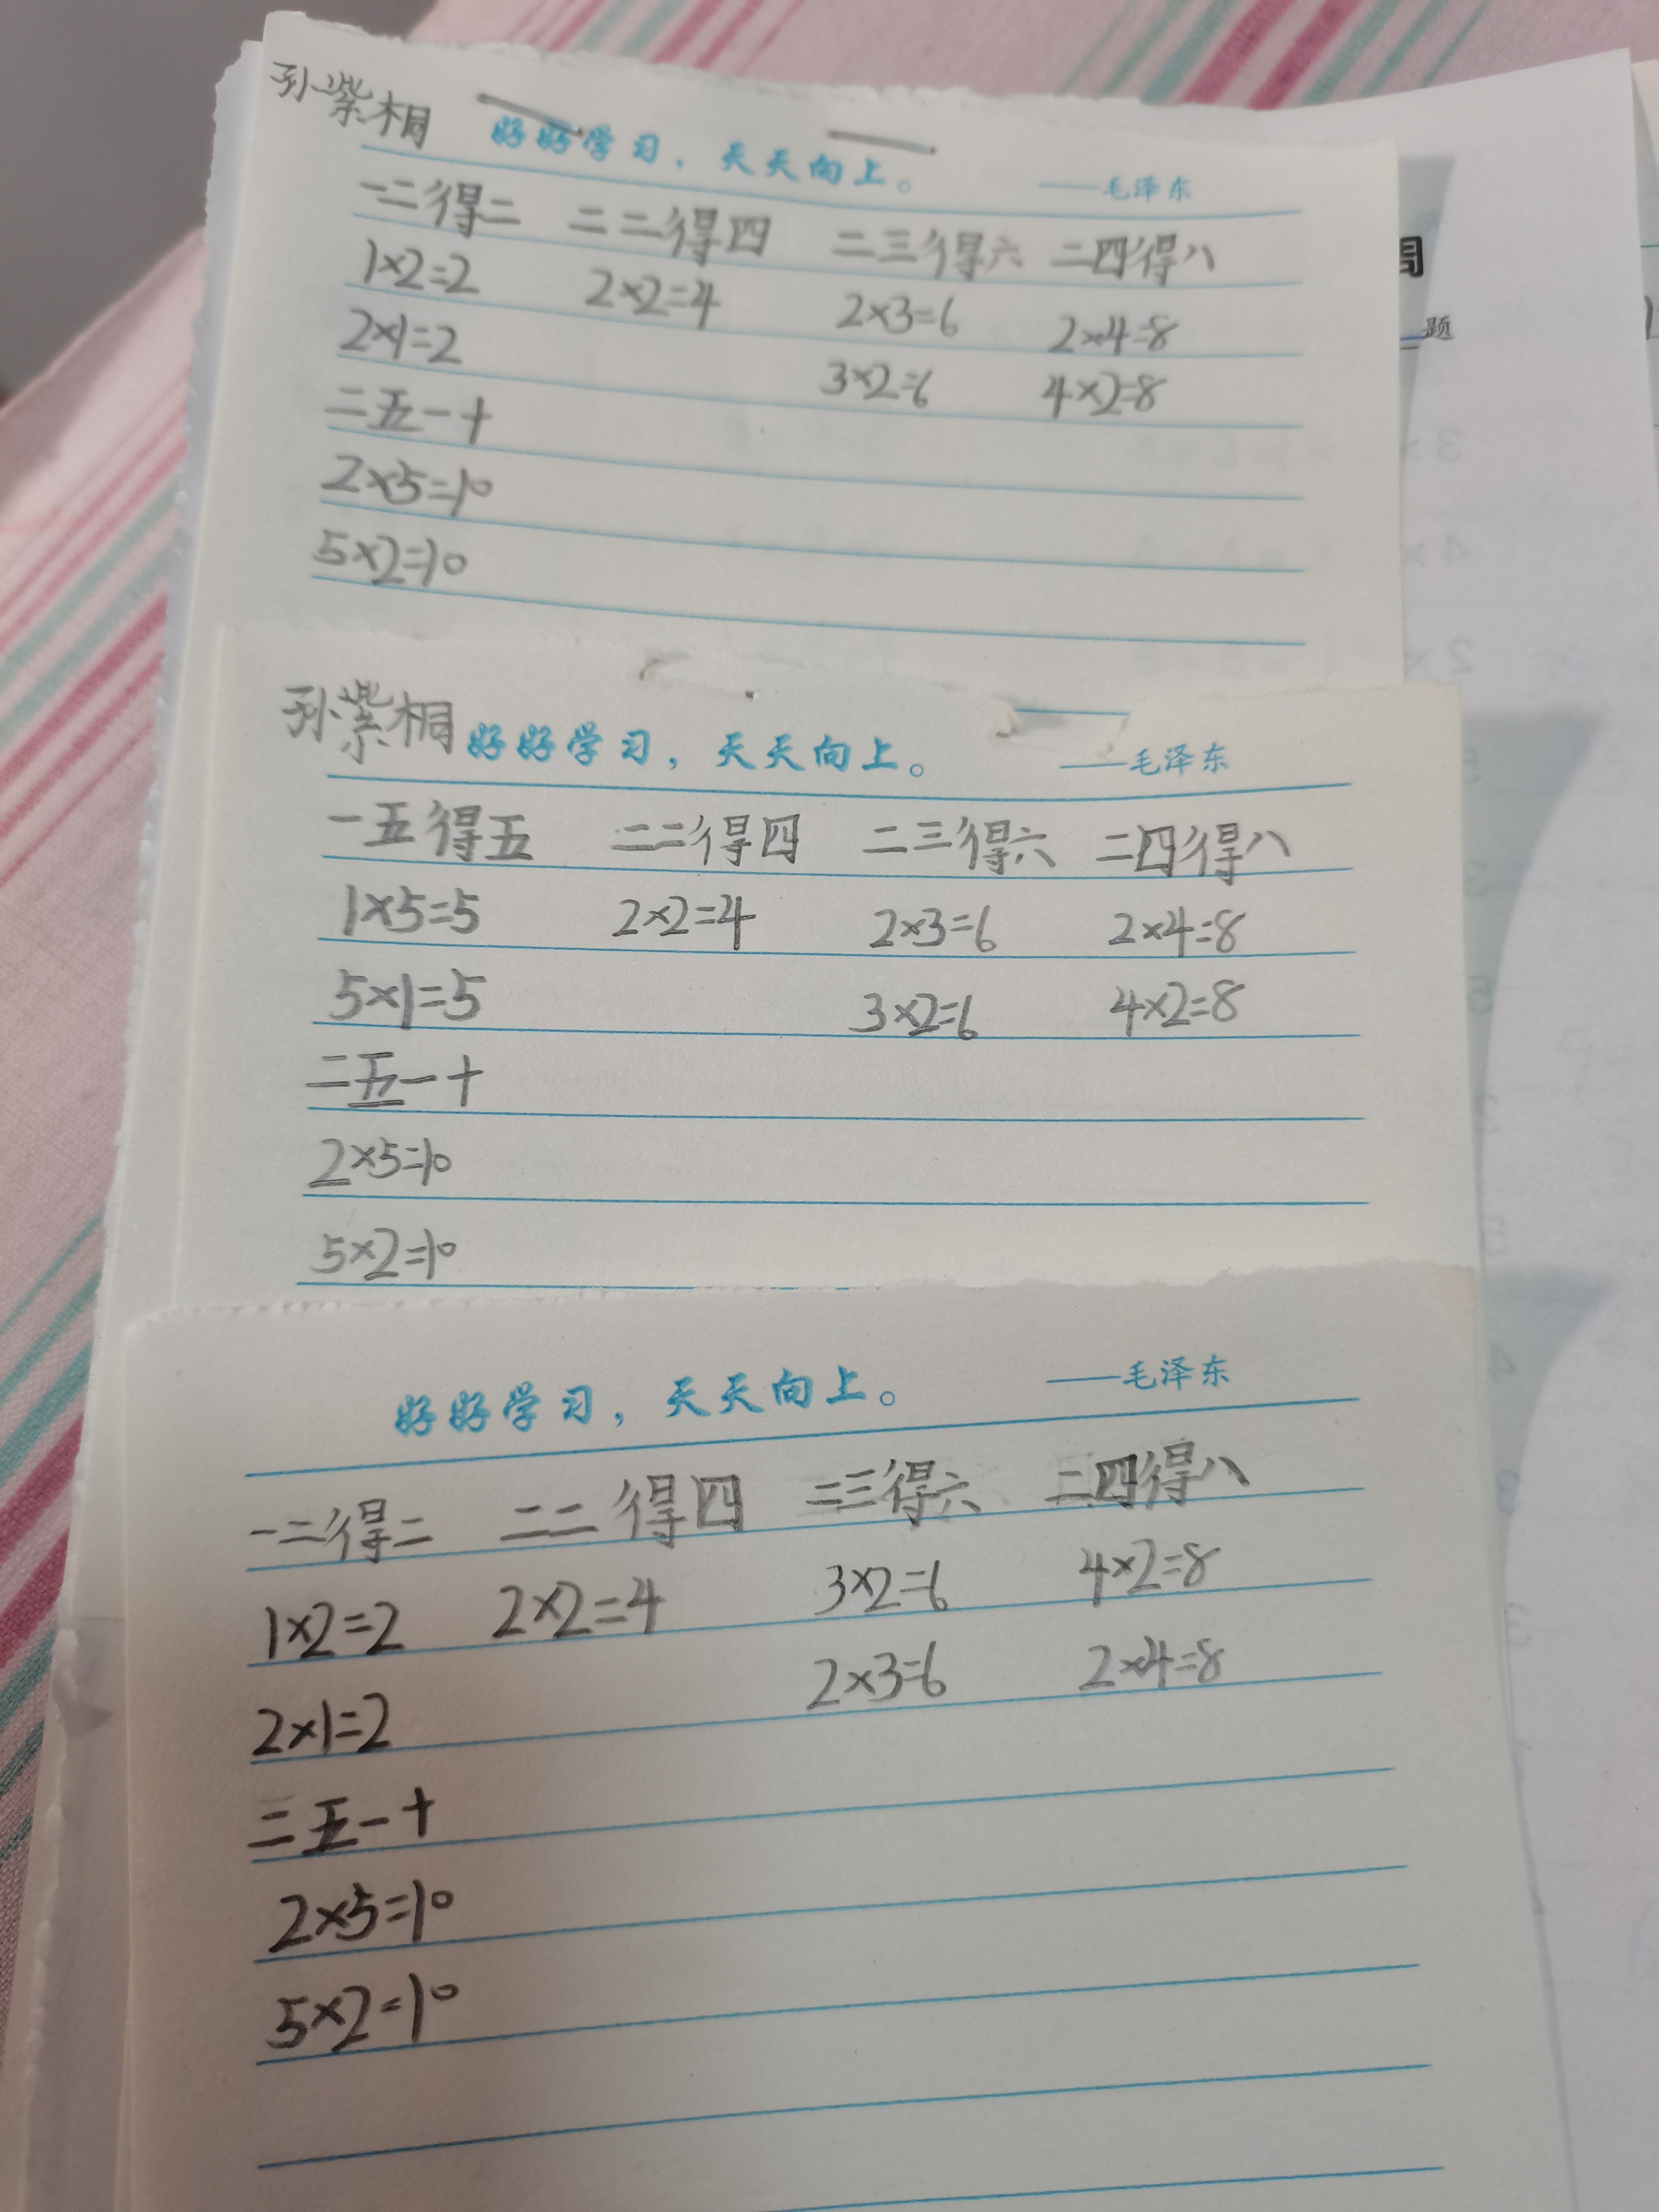 孙紫相
好好学习，天天向上。 ——毛泽东
一二得二 二二得四 二三得六 二四得八
1×2=2 2×2=4 2×3=6 2×4=8
2×1=2 3×2=6 4×2=8
二五一十
2×5=10
5×2=10
孙紫相
好好学习，天天向上。 ——毛泽东
一五得五 二二得四 二三得六 二四得八
1×5=5 2×2=4 2×3=6 2×4=8
5×1=5 3×2=6 4×2=8
二五一十
2×5=10
5×2=10
好好学习，天天向上。 ——毛泽东
一二得二 二二得四 二三得六 二四得八
1×2=2 2×2=4 3×2=6 4×2=8
2×1=2 2×3=6 2×4=8
二五一十
2×5=10
5×2=10
题